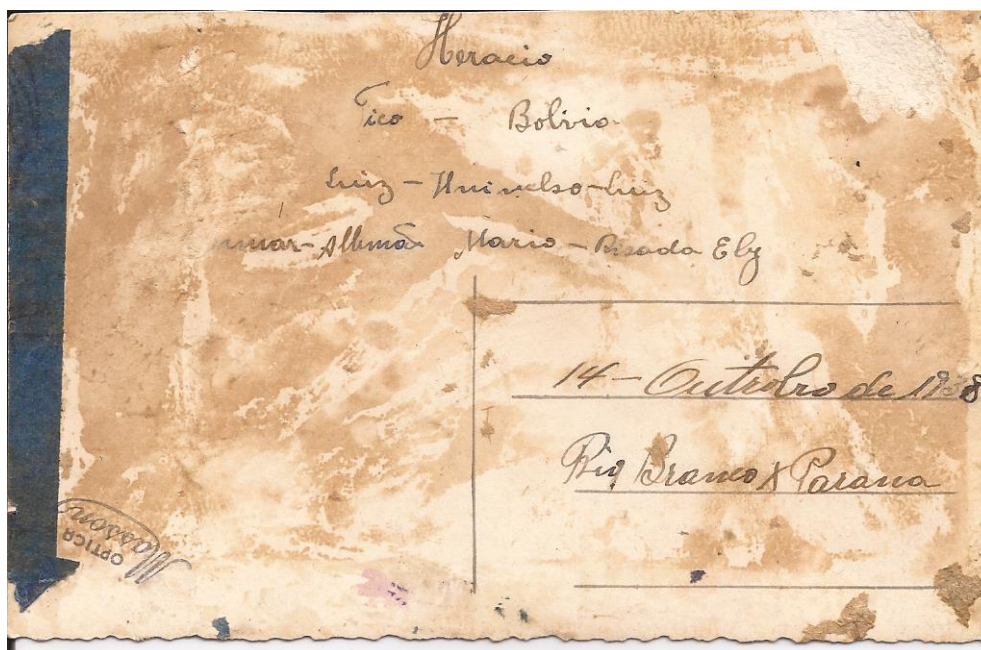 Heracio
Tico - Bolivio
Luiz - Univelso - Luiz
Allemão Mario - Risada Ely
14 - Outrobro de
Rio Branco X Parana
OPTICA
Masson